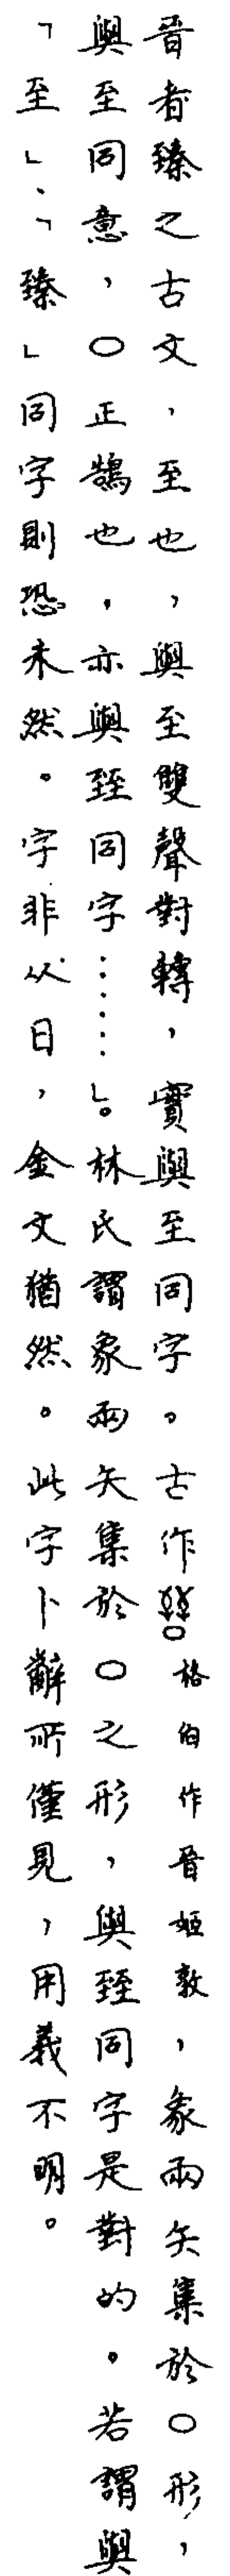 晉者臻之古文，至也，與至雙聲對轉，實與至同字。古作𦥔格伯作晉姬敦，象兩矢集於○形，
與至同意，○正鵠也，亦與臸同字⋯⋯」。林氏謂象兩矢集於○之形，與臸同字是對的。若謂與
「至」、「臻」同字則恐未然。字非从日，金文猶然。此字卜辭所僅見，用義不明。